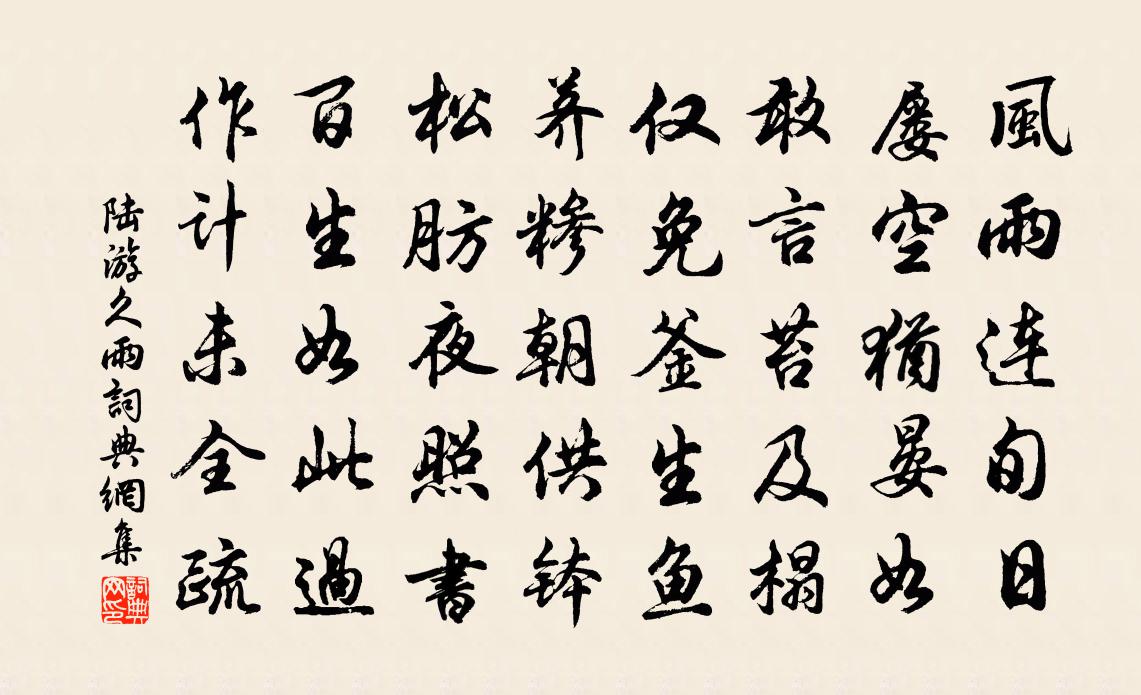 風雨連旬日
屡空猶晏如
敢言苔及榻
仅免釜生魚
荞糝朝供鉢
松肪夜照書
百生如此過
作計未全疏
陆游久雨詞典網集
詞典網印